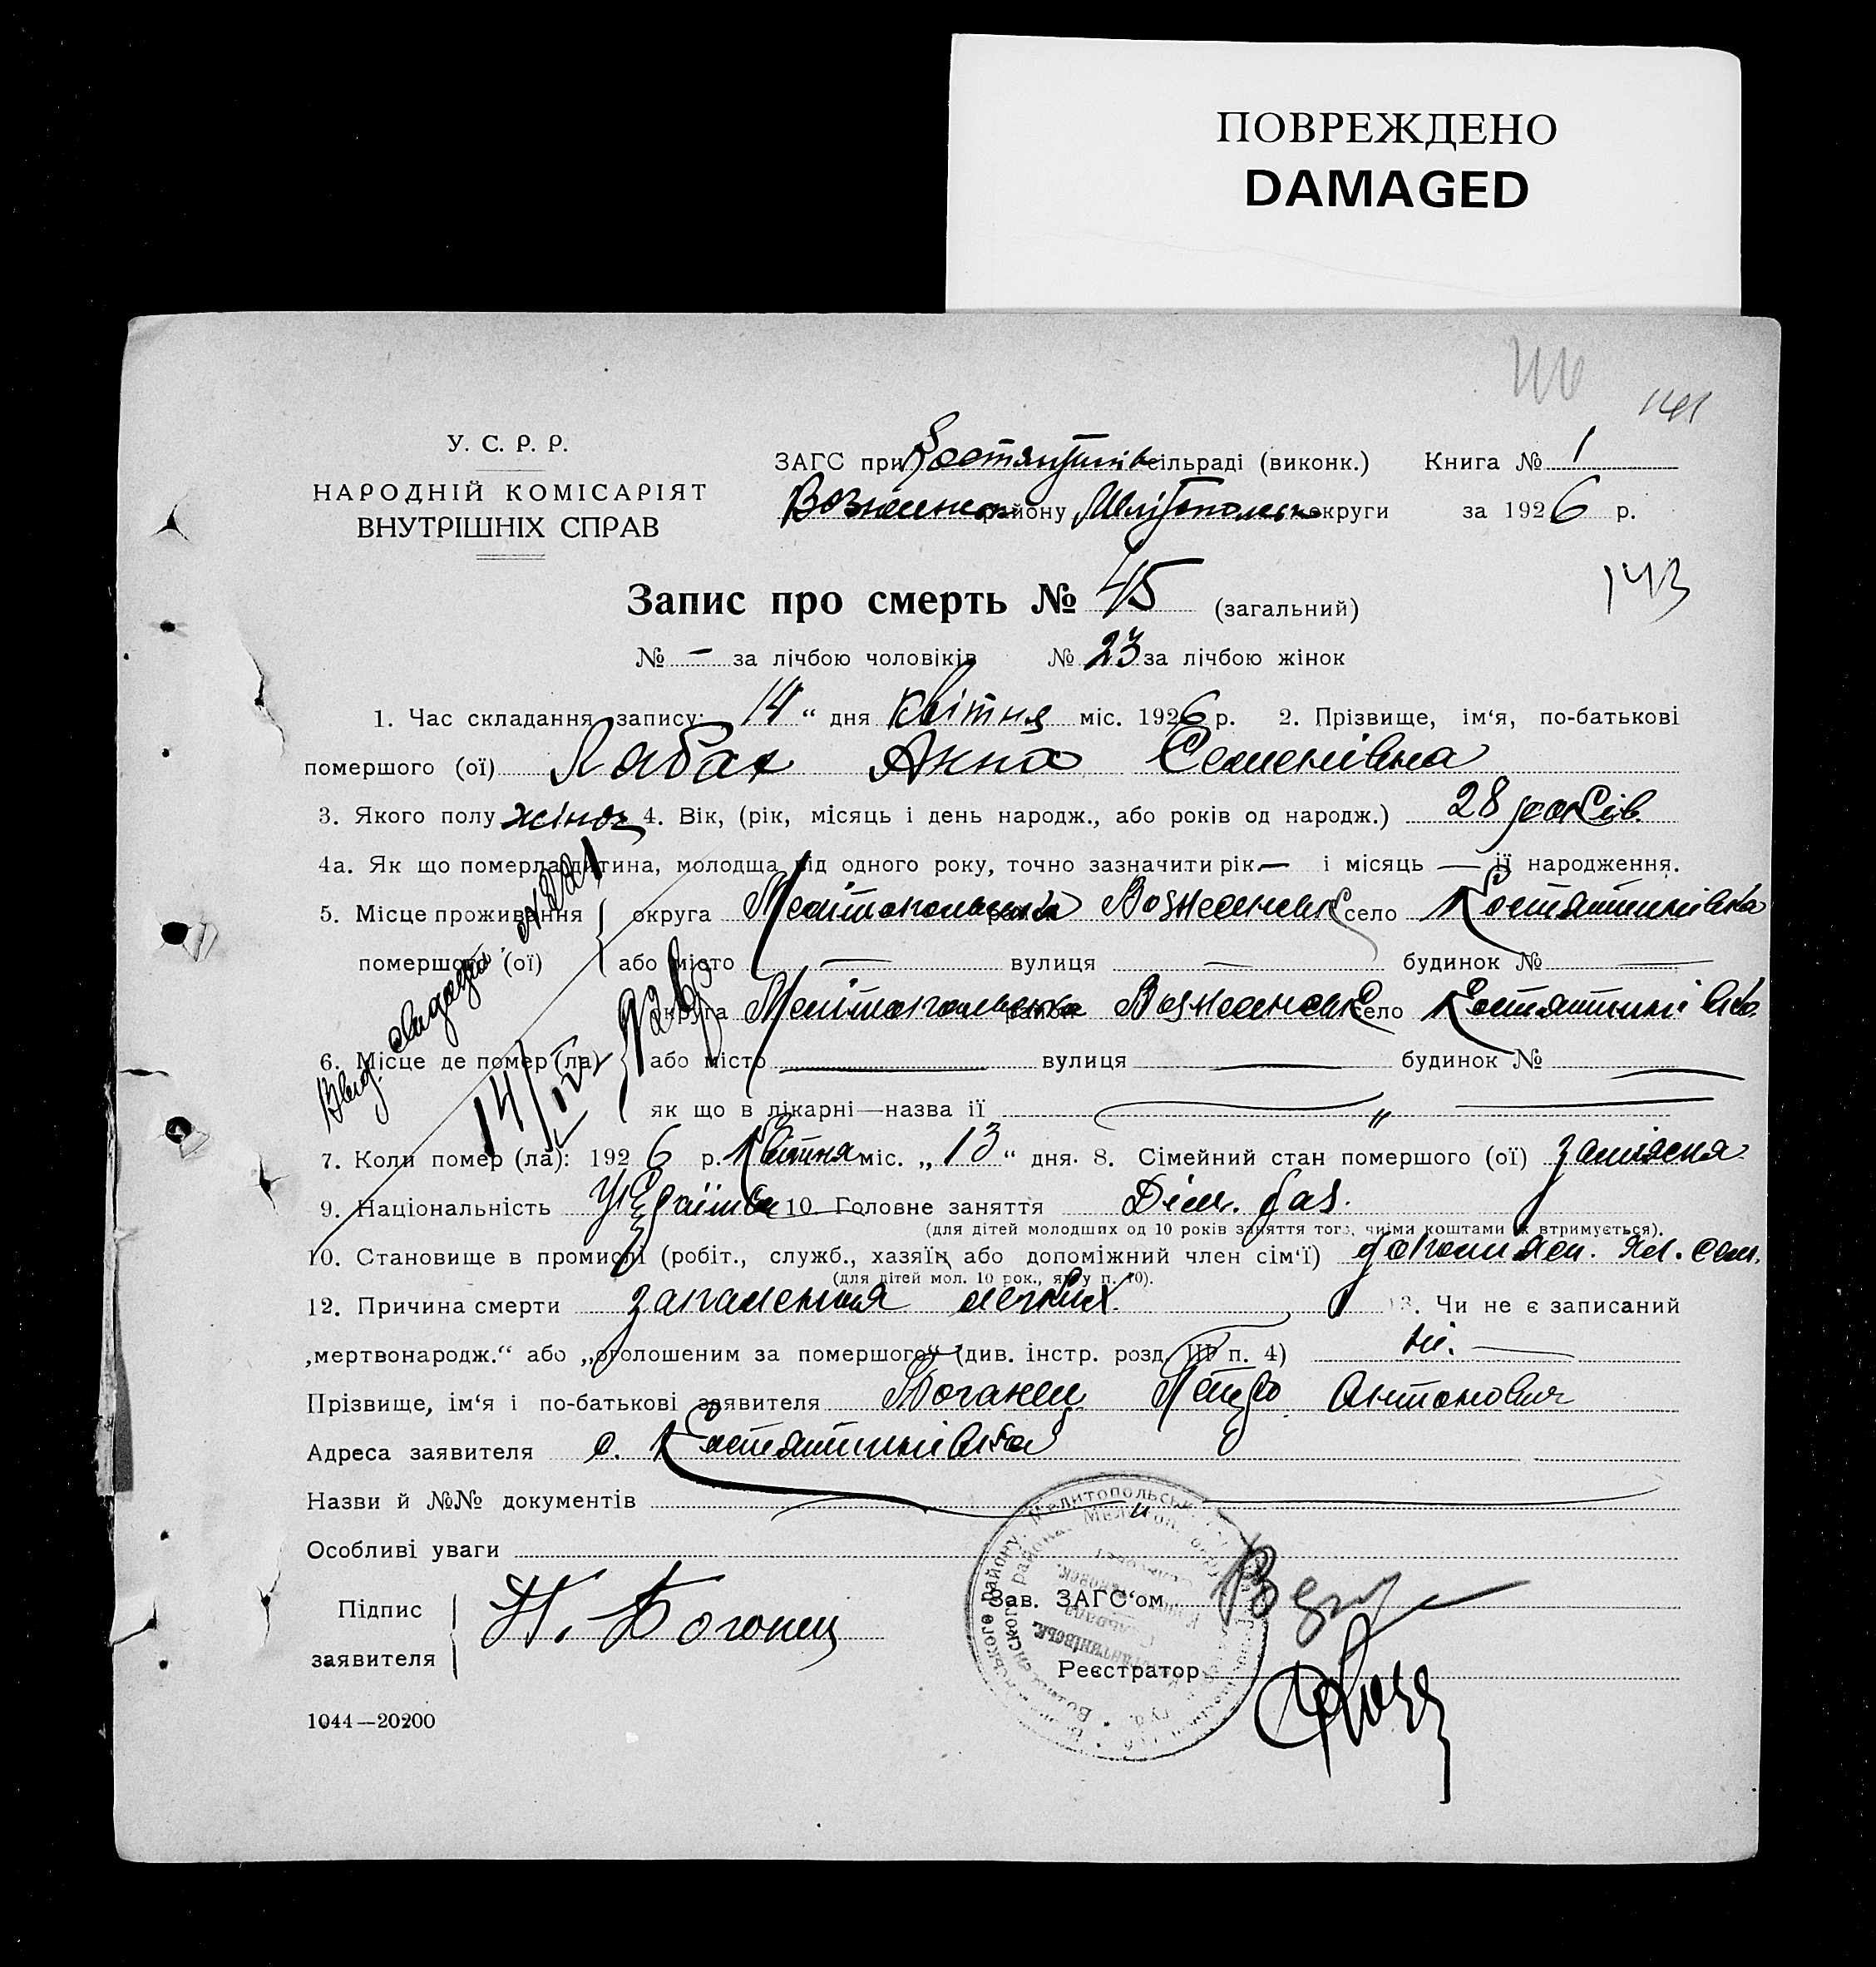 ПОВРЕЖДЕНО
DAMAGED
141
У. С. Р. Р.
НАРОДНІЙ КОМІСАРІЯТ
ВНУТРІШНІХ СПРАВ
ЗАГС при Костянтинів сільраді (виконк.) Книга № 1
Вознесенськ району Мелітопольськ округи за 1926 р.
143
Запис про смерть № 45 (загальний)
№ — за лічбою чоловіків № 23 за лічбою жінок
1. Час складання запису: 14 “ дня Квітня міс. 1926 р. 2. Прізвище, ім‘я, по-батькові
помершого (ої) Лабах Анна Семенівна
3. Якого полу жіноч 4. Вік, (рік, місяць і день народж., або років од народж.) 28 років
4а. Як що померла дитина, молодша від одного року, точно зазначити рік — і місяць — її народження.
5. Місце проживання округа Мелітопольська район Вознесенськ село Костянтинівка
помершого (ої) або місто — вулиця — будинок № —
округа Мелітопольська район Вознесенськ село Костянтинівка
6. Місце де помер (ла) або місто — вулиця — будинок № —
як що в лікарні—назва її — „ —
14/IV 926
7. Коли помер (ла): 1926 р. Квітня міс. „13“ дня. 8. Сімейний стан помершого (ої) заміжня
9. Національність Українка 10. Головне заняття Дом. Газ.
(для дітей молодших од 10 років заняття того, чиїми коштами їх втримується).
10. Становище в промислі (робіт., служб., хазяїн або допоміжний член сім‘ї) допоміжн. чл. сем.
(для дітей мол. 10 рок., як у п. 10).
12. Причина смерти запаления легких 13. Чи не є записаний
„мертвонародж.“ або „оголошеним за помершого“ (див. інстр. розд. III п. 4) ні. —
Прізвище, ім‘я і по-батькові заявителя Боганец Петро Антонович
Адреса заявителя с. Костянтинівка
Назви й №№ документів — „ —
Особливі уваги
Підпис
заявителя
Н. Боганец
Зав. ЗАГС‘ом
Реєстратор
1044—20200